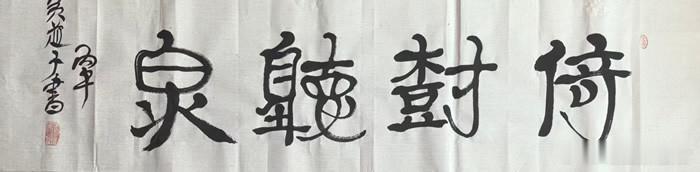 倚樹聽泉
道子書